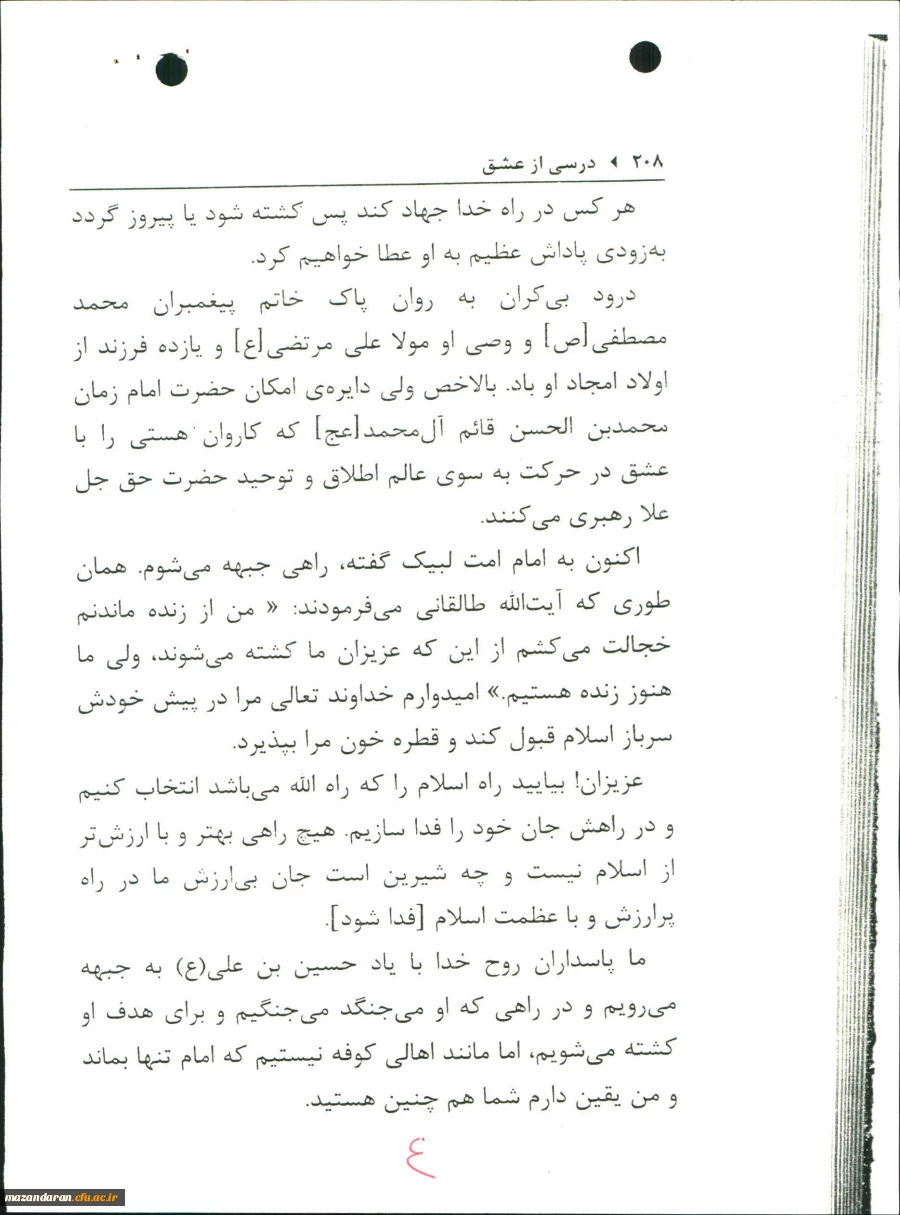 ۲۰۸ ◂ درسی از عشق
هر کس در راه خدا جهاد کند پس کشته شود یا پیروز گردد
به‌زودی پاداش عظیم به او عطا خواهیم کرد.
درود بی‌کران به روان پاک خاتم پیغمبران محمد
مصطفی[ص] و وصی او مولا علی مرتضی[ع] و یازده فرزند از
اولاد امجاد او باد. بالاخص ولی دایره‌ی امکان حضرت امام زمان
محمدبن الحسن قائم آل‌محمد[عج] که کاروان هستی را با
عشق در حرکت به سوی عالم اطلاق و توحید حضرت حق جل
علا رهبری می‌کنند.
اکنون به امام امت لبیک گفته، راهی جبهه می‌شوم. همان
طوری که آیت‌الله طالقانی می‌فرمودند: « من از زنده ماندنم
خجالت می‌کشم از این که عزیزان ما کشته می‌شوند، ولی ما
هنوز زنده هستیم.» امیدوارم خداوند تعالی مرا در پیش خودش
سرباز اسلام قبول کند و قطره خون مرا بپذیرد.
عزیزان! بیایید راه اسلام را که راه الله می‌باشد انتخاب کنیم
و در راهش جان خود را فدا سازیم. هیچ راهی بهتر و با ارزش‌تر
از اسلام نیست و چه شیرین است جان بی‌ارزش ما در راه
پرارزش و با عظمت اسلام [فدا شود].
ما پاسداران روح خدا با یاد حسین بن علی(ع) به جبهه
می‌رویم و در راهی که او می‌جنگد می‌جنگیم و برای هدف او
کشته می‌شویم، اما مانند اهالی کوفه نیستیم که امام تنها بماند
و من یقین دارم شما هم چنین هستید.
۴
mazandaran.cfu.ac.ir